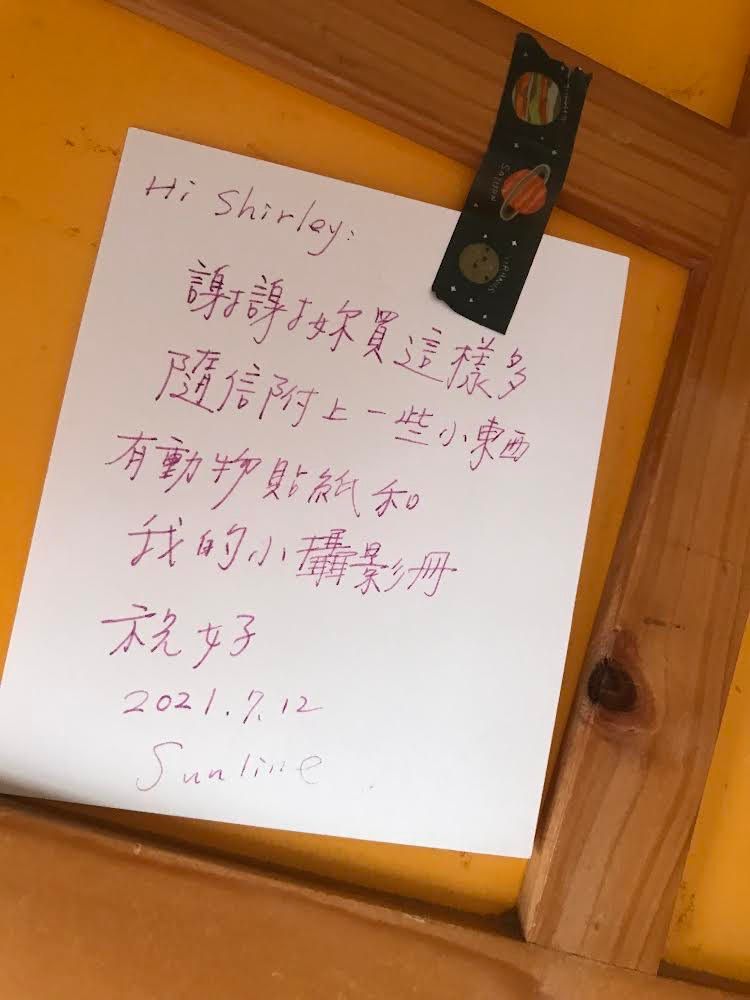 Hi Shirley:
謝謝妳買這樣多
隨信附上一些小東西
有動物貼紙和
我的小攝影冊
祝好
2021.7.12
Sunline
SATURN
URANUS